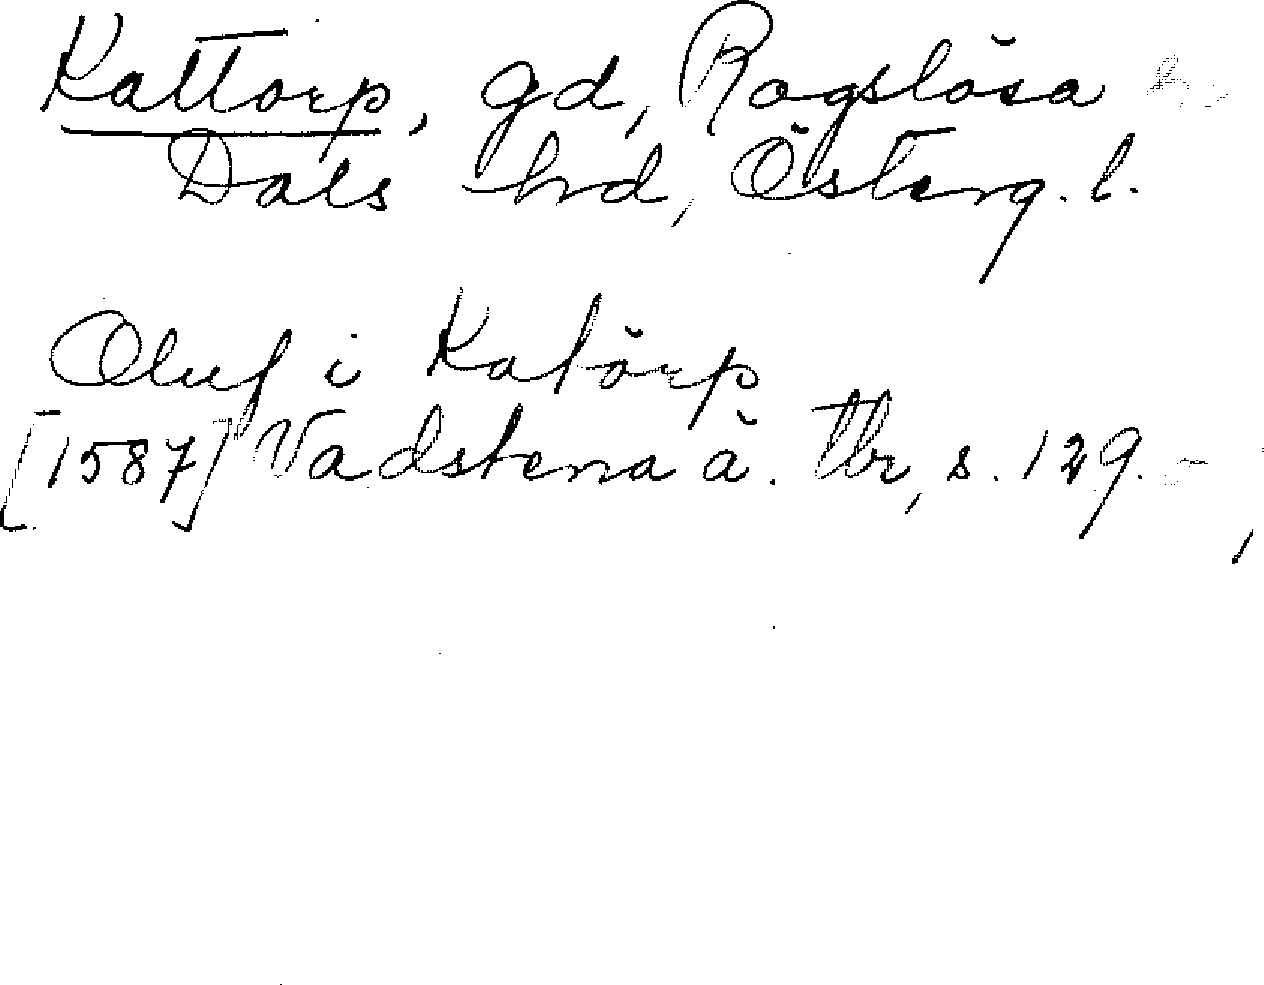 Kattorp, gd, Rogslösa
Dals hrd, Österg. l.
Oluf i Katörp
[1587] Vadstena ä. tbr, s. 129.